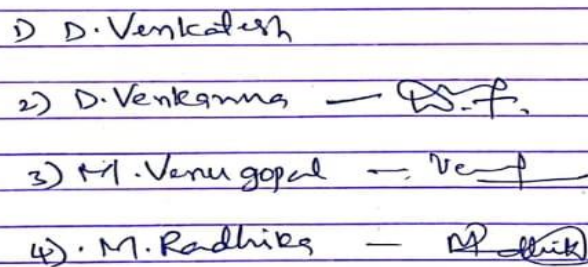 1) D. Venkatesh
2) D. Venkanna —
3) M. Venu gopal —
4). M. Radhika —